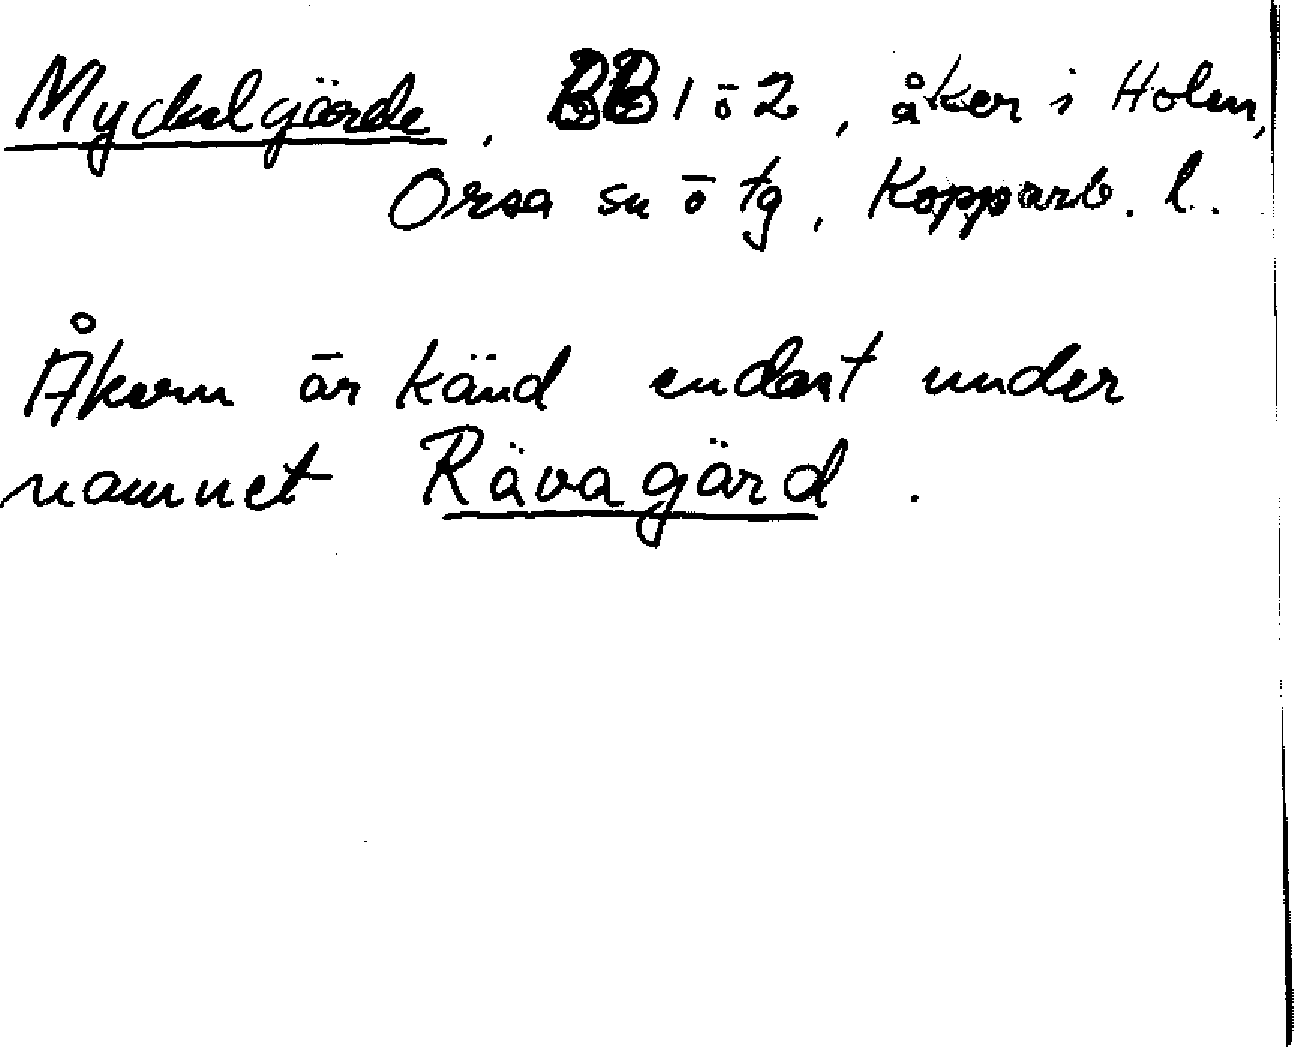 Myckelgärde, BB 1 ō 2, åker i Holen,
Orsa sn ō tg, Kopparb. l.
Åkern är känd endast under
namnet Rävagärd.